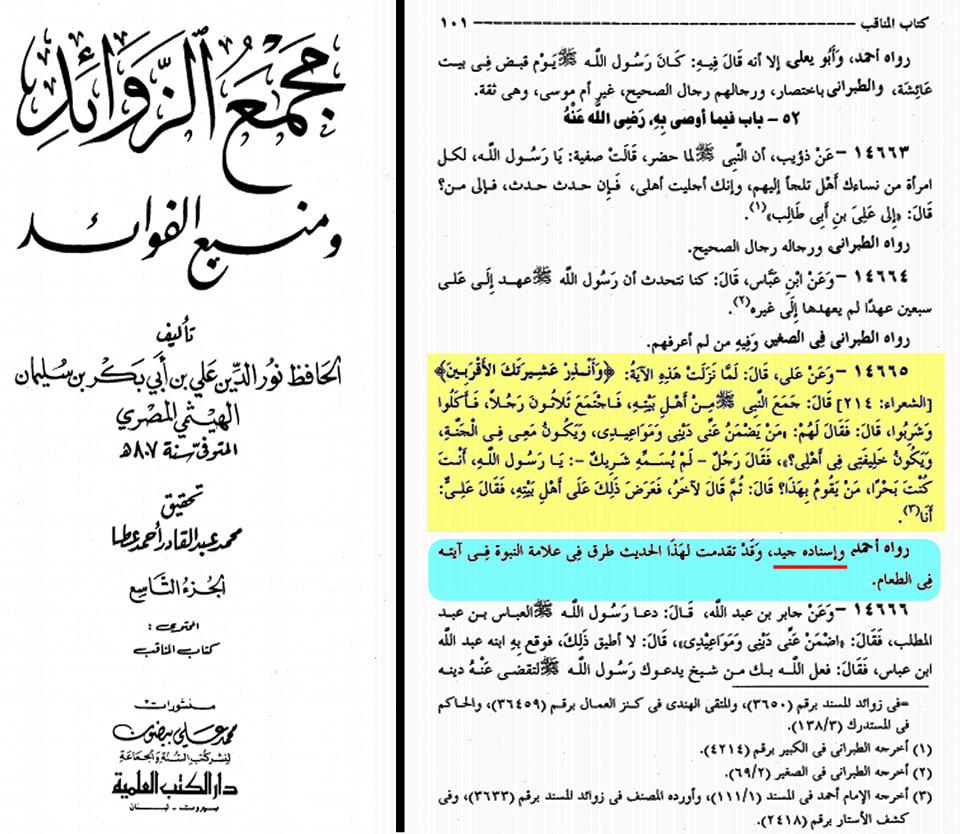 مجمع الزوائد
ومنبع الفوائد
تأليف
الحافظ نور الدين علي بن أبي بكر بن سليمان
الهيثمي المصري
المتوفى سنة ٨٠٧هـ
تحقيق
محمد عبد القادر أحمد عطا
الجزء التاسع
المحتوى :
كتاب المناقب
منشورات
محمد علي بيضون
لنشر كتب السنة والجماعة
دار الكتب العلمية
بيروت - لبنان
كتاب المناقب ١٠١
رواه أحمد، وَأَبُو يعلى إلا أنه قَالَ فِيهِ: كَانَ رَسُول اللَّه ﷺ يَوْم قبض فِى بيت
عَائِشَة، وَالطبرانى باختصار، ورجالهم رجال الصحيح، غير أم موسى، وهى ثقة.
٥٢ - باب فيما أوصى بِهِ، رَضِى اللَّه عَنْهُ
١٤٦٦٣ - عَنْ ذؤيب، أن النَّبِى ﷺ لما حضر، قَالَتْ صفية: يَا رَسُول اللَّه، لكل
امرأة من نساءك أَهْل تلجأ إليهم، وإنك أجليت أهلى، فَإِن حدث حدث، فإلى من؟
قَالَ: «إلى عَلِىّ بنِ أَبِى طَالِب»(١).
رواه الطبرانى ورجاله رجال الصحيح.
١٤٦٦٤ - وَعَنْ ابْنِ عَبَّاس، قَالَ: كنا نتحدث أن رَسُول اللَّه ﷺ عهد إِلَى عَلى
سبعين عهدًا لم يعهدها إِلَى غيره(٢).
رواه الطبرانى فِى الصغير، وَفِيهِ من لم أعرفهم.
١٤٦٦٥ - وَعَنْ على، قَالَ: لَمَّا نَزَلَتْ هَذِهِ الآيَةُ: ﴿وَأَنْذِرْ عَشِيرَتَكَ الأَقْرَبِينَ﴾
[الشعراء: ٢١٤] قَالَ: جَمَعَ النَّبِى ﷺ مِنْ أَهْلِ بَيْتِهِ، فَاجْتَمَعَ ثَلاثُونَ رَجُلاً، فَأَكَلُوا
وَشَرِبُوا، قَالَ: فَقَالَ لَهُمْ: «مَنْ يَضْمَنُ عَنِّى دَيْنِى وَمَوَاعِيدِى، وَيَكُونُ مَعِى فِى الْجَنَّةِ،
وَيَكُونُ خَلِيفَتِى فِى أَهْلِى؟»، فَقَالَ رَجُلٌ - لَمْ يُسَمِّهِ شَرِيكٌ -: يَا رَسُولَ اللَّهِ، أَنْتَ
كُنْتَ بَحْرًا، مَنْ يَقُومُ بِهَذَا؟ قَالَ: ثُمَّ قَالَ لآخَرُ، فَعَرَضَ ذَلِكَ عَلَى أَهْلِ بَيْتِهِ، فَقَالَ عَلِىٌّ:
أَنَا(٣).
رواه أحمد، وإسناده جيد، وَقَدْ تقدمت لهَذَا الحديث طرق فِى علامة النبوة فِى آيته
فِى الطعام.
١٤٦٦٦ - وَعَنْ جابر بن عبد اللَّه، قَالَ: دعا رَسُول اللَّه ﷺ العباس بن عبد
المطلب، فَقَالَ: «اضْمَنْ عَنِّى دَيْنِى وَمَوَاعِيْدِى»، قَالَ: لا أطيق ذَلِكَ، فوقع بِهِ ابنه عبد اللَّه
ابن عباس، فَقَالَ: فعل اللَّه بك من شيخ يدعوك رَسُول اللَّه ﷺ لتقضى عَنْهُ دينه
=فى زوائد المسند برقم (٣٦٥٠)، والمتقى الهندى فى كنز العمال برقم (٣٦٤٥٩)، والحاكم
فى المستدرك (١٣٨/٣).
(١) أخرجه الطبرانى فى الكبير برقم (٤٢١٤).
(٢) أخرجه الطبرانى فى الصغير (٦٩/٢).
(٣) أخرجه الإمام أحمد فى المسند (١١١/١)، وأورده المصنف فى زوائد المسند برقم (٣٦٣٣)، وفى
كشف الأستار برقم (٢٤١٨).